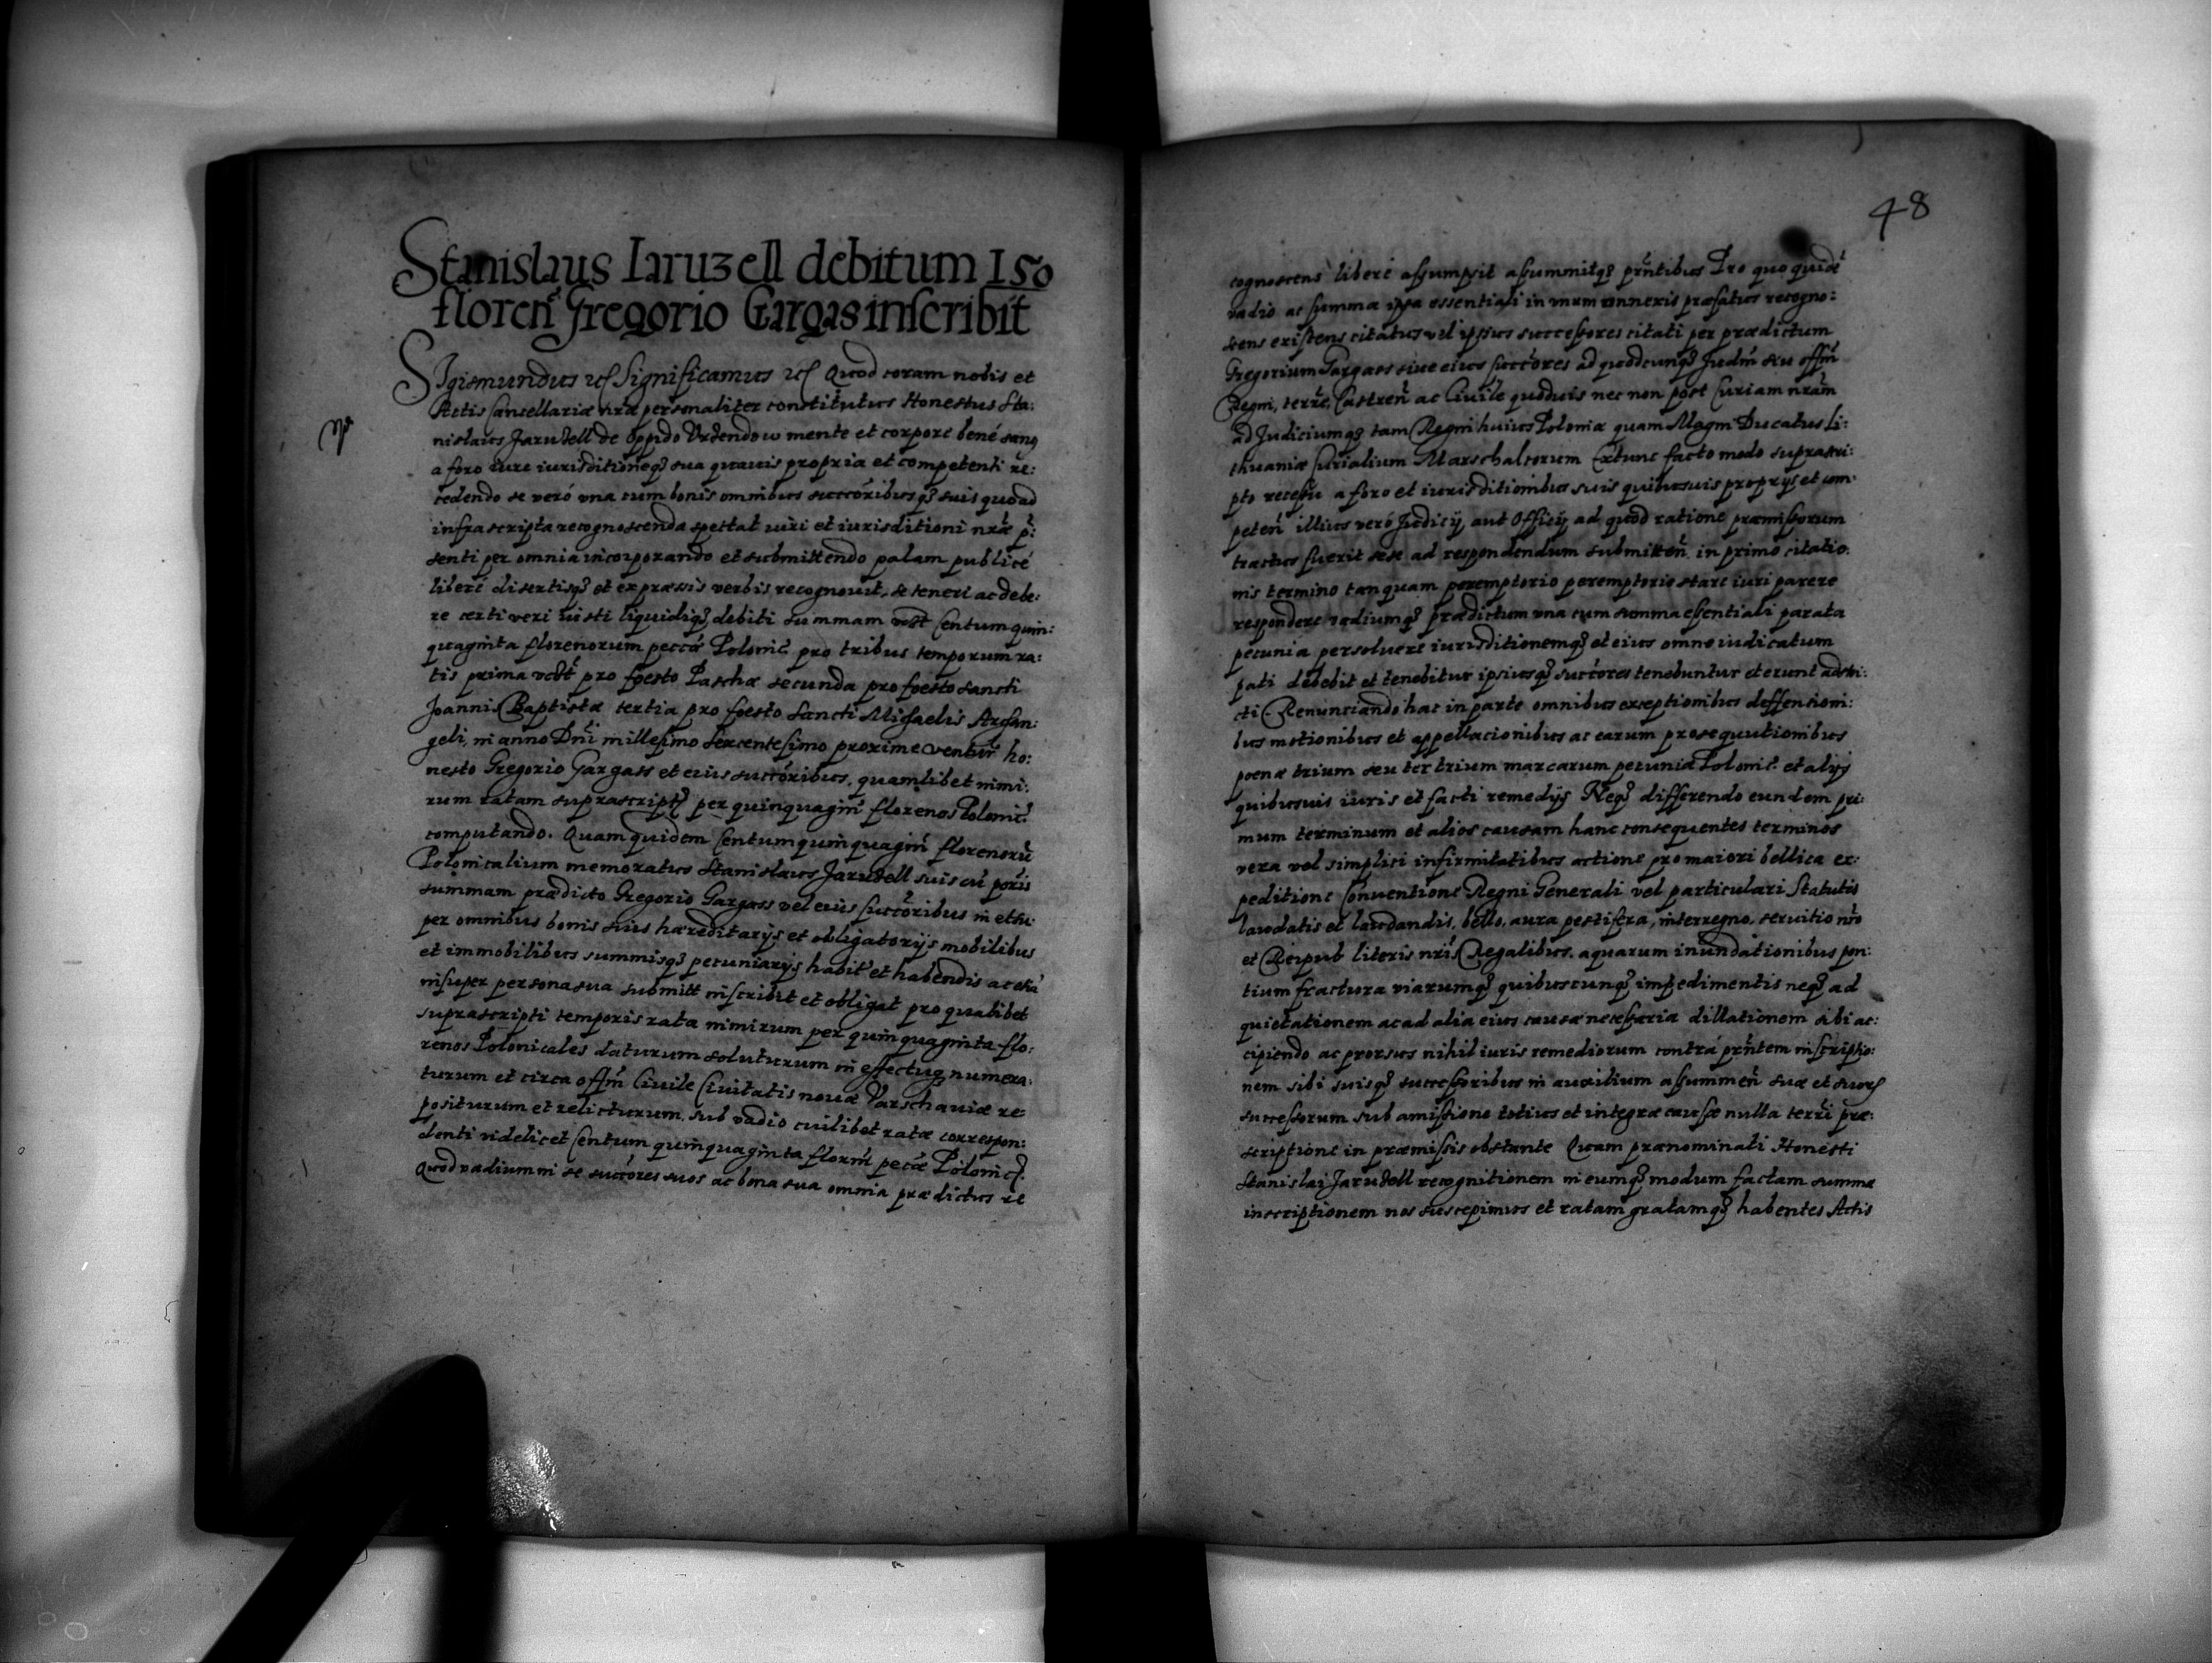 Stanislaus Iaruzell debitum 150
floren̄ Gregorio Gargas inscribit
SIgismundus etc̄ Significamus etc̄ Quod coram nobis et
Actis Cancellariæ nr̄æ personaliter constitutus Honestus Sta:
nislaus Jaruzell de Oppido Urzendow mente et corpore bené sanus
a foro iure iurisditioneq3 sua quauis propria et competenti re:
cedendo se veró vna cum bonis omnibus succōribusq3 suis quoad
infrascripta recognoscenda spectat iuri et iurisditioni nr̄æ p̄:
senti per omnia incorporando et submittendo palam publicé
liberé disertisq3 et expræssis verbis recognouit, se teneri ac debe:
re certi veri iusti liquidiq3 debiti summam vdlt Centum quin:
quaginta florenorum peccæ Polonic̄ pro tribus temporum ra:
tis prima vdlt pro foesto Paschæ secunda pro foesto Sancti
Joannis Baptistæ tertia pro foesto Sancti Michaelis Archan:
geli, in anno Dn̄i millesimo Sexcentesimo proxime ventur̄ ho:
nesto Gregorio Gargass et eius succōribus, quamlibet nimi:
rum ratam suprascript per quinquagin̄ florenos Polonic̄
computando. Quam quidem Centum quinquagin̄ florenorū
Polonicalium memoratus Stanislaus Jaruzell suis cū poris
summam prædicto Gregorio Gargass vel eius succōribus in et su:
per omnibus bonis suis hæreditarijs et obligatorijs mobilibus
et immobilibus summisq3 pecuniarijs habit̄ et habendis ac etiā
insuper persona sua submitt inscribit et obligat pro qualibet
suprascripti temporis rata nimirum per quinquaginta flo:
renos Polonicales daturum soluturum in effectuq3 numera:
turum et circa offm̄ Ciuile Ciuitatis nouæ Varschauiæ re:
positurum et relicturum, sub vadio cuilibet ratæ correspon:
denti videlicet Centum quinquaginta florn̄ pecc̄æ Polonic
Quod vadium in se succōres suos ac bona sua omnia prædictus re
48
cognoscens liberé assumpsit assummitq3 prn̄tibus Pro quo quidē
vadio ac summa ipsa essentiali inimum conneris præfatus recogno:
scens existens citatus vel ipsius successores citati per prædictum
Gregorium Gargass siue eius succōres ad quodcunq3 Judm̄ seu offm̄
Regni, terr̄e, Castren̄ ac Ciuile quoduis nec non post Curiam nr̄am
ad Judiciumq3 tam Regni huius Poloniæ quam Magni Ducatus Li:
thuaniæ Curialium Marschalcorum Extunc facto modo suprascri:
pto recessu a foro et iurisditionibus suis quibusuis proprijs et com:
peten̄ illius veró Judicij aut Officij ad quod ratione præmissorum
tractus fuerit sese ad respondendum submitten̄ in primo citatio:
nis termino tanquam peremptorio peremptorie stare iuri parere
respondere vadiumq3 prædictum vna cum summa essentiali parata
pecunia persoluere iurisditionemq3 et eius omne iudicatum
pati debebit et tenebitur ipsiusq3 succōres tenebuntur et erunt adstri:
cti. Renunciando hac in parte omnibus exceptionibus deffensioni:
bus motionibus et appellacionibus ac earum prosequutionibus
poenæ trium seu ter trium marcarum pecuniæ Polonic̄ et alijs
quibusuis iuris et facti remedijs Neq3 differendo eundem pri:
mum terminum et alios causam hanc consequentes terminos
vera vel simplici infirmitatibus actione pro maiori bellica ex:
peditione Conuentione Regni Generali vel particulari Statutis
laudatis et laudandis, bello, aura pestifera, interregno, seruitio nr̄o
et Reipub literis nr̄is Regalibus, aquarum inundationibus pon:
tium fractura viarumq3 quibuscunq3 impedimentis neq3 ad
quietationem ac ad alia eius causæ necessaria dillationem sibi ac:
cipiendo ac prorsus nihil iuris remediorum contrá prn̄tem inscriptio:
nem sibi suisq3 successoribus in auxilium assummen̄ suæ et suor
successorum sub amissione totius et integræ causæ nulla terr̄i præ:
scriptione in præmissis obstante Quam prænominati Honesti
Stanislai Jaruzell recognitionem in eumq3 modum factam summæ
inscriptionem nos suscepimus et ratam gratamq3 habentes Actis